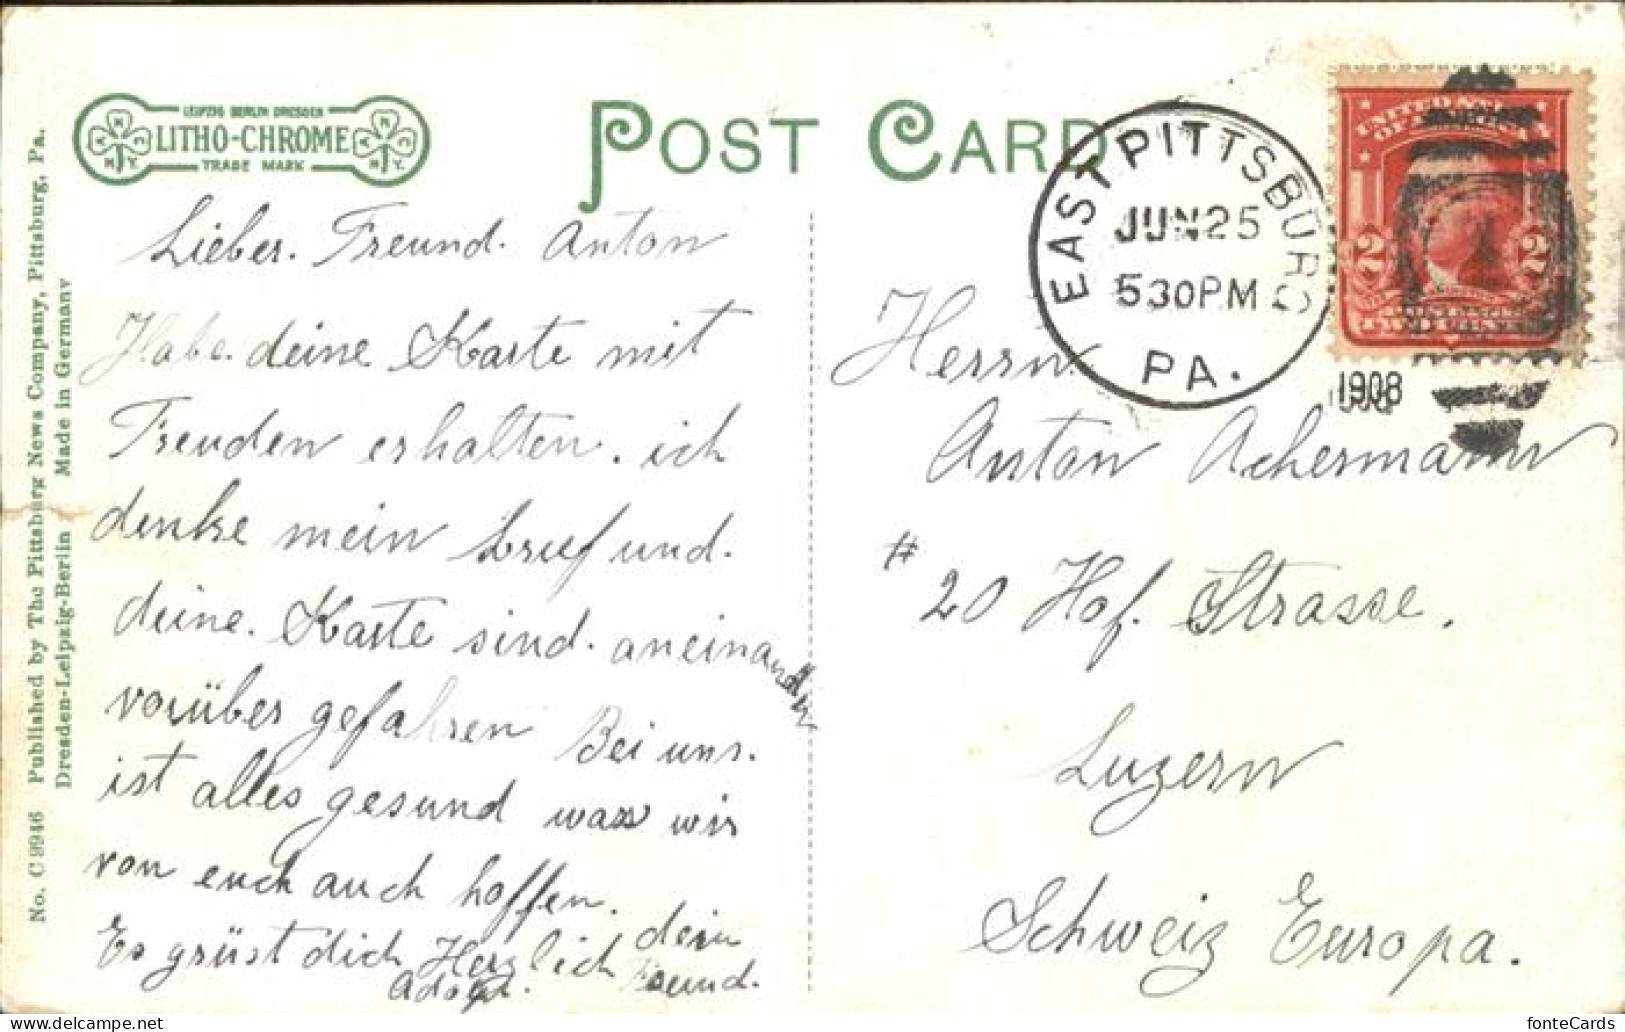 LEIPZIG BERLIN DRESDEN
LITHO-CHROME
TRADE MARK
N.Y.
POST CARD
EAST PITTSBURG
JUN 25
530 PM
PA.
1908
UNITED STATES
OF AMERICA
2 2
TWO CENTS
No. C 9946 Published by The Pittsburg News Company, Pittsburg, Pa.
Dresden-Leipzig-Berlin Made in Germany
Lieber. Freund. Anton
Habe. deine Karte mit
Freuden erhalten. ich
denke mein brief und.
deine. Karte sind. aneinander
vorüber gefahren Bei uns.
ist alles gesund was wir
von euch auch hoffen.
Es grüst dich Herzlich dein
Adolf. Freund.
Herrn
Anton Achermann
# 20 Hof. Strasse.
Luzern
Schweiz Europa.
fonteCards